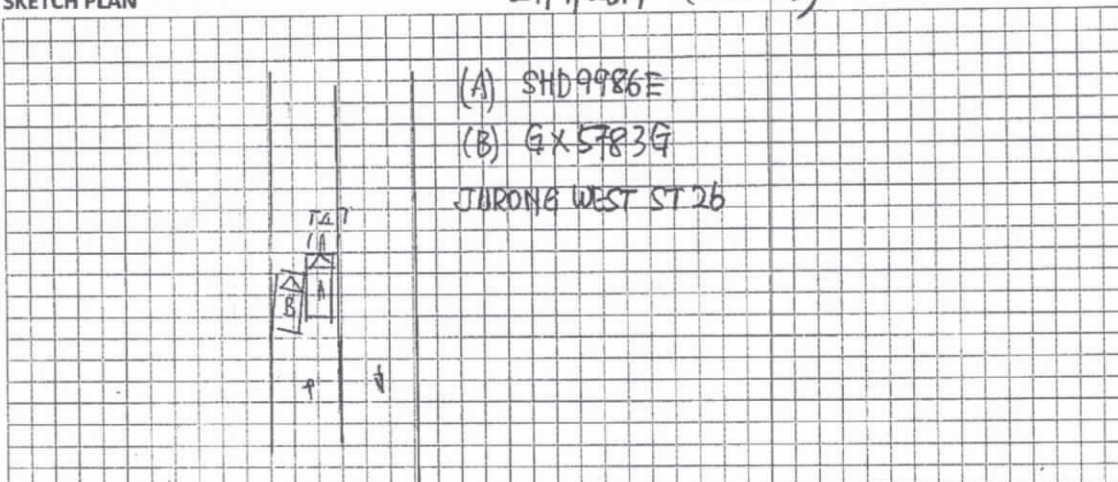 SKETCH PLAN
(A) SHD9986E
(B) GX5783G
JURONG WEST ST 26
A
B
A